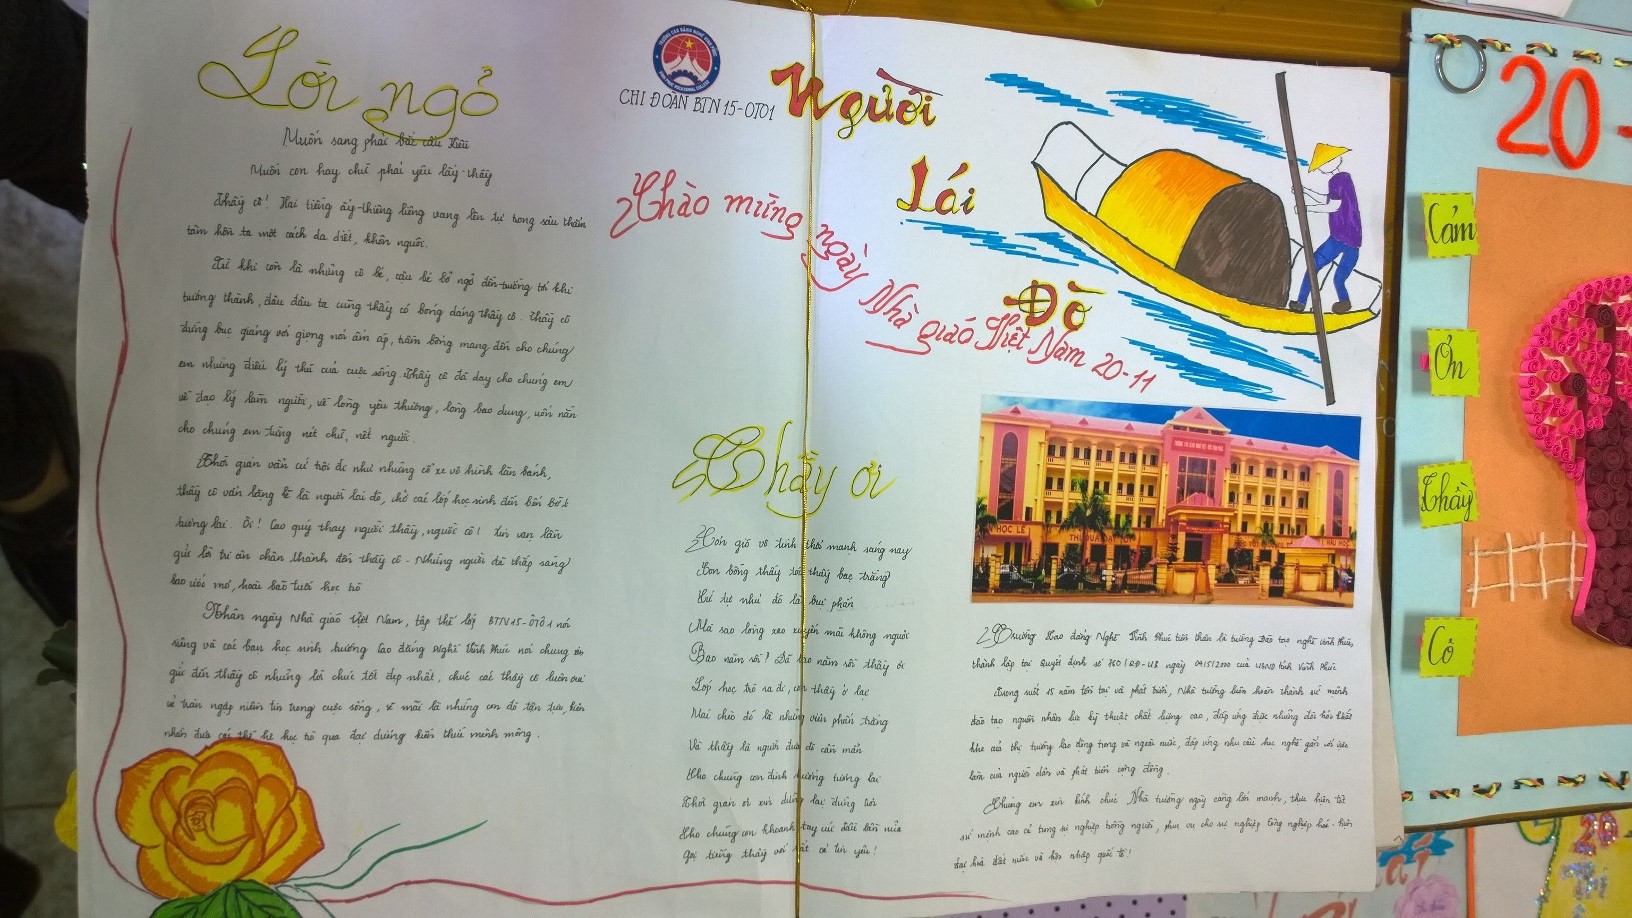 Lời ngỏ
Muốn sang phải bắc cầu Kiều
Muốn con hay chữ phải yêu lấy thầy
Thầy cô! Hai tiếng ấy thiêng liêng vang lên tự trong sâu thẳm
tâm hồn ta một cách da diết, khôn nguôi.
Từ khi còn là những cô bé, cậu bé bỡ ngỡ đến trường tới khi
trưởng thành, đâu đâu ta cũng thấy có bóng dáng thầy cô. Thầy cô
đứng bục giảng với giọng nói ấm áp, trầm bổng mang đến cho chúng
em những điều lý thú của cuộc sống. Thầy cô đã dạy cho chúng em
về đạo lý làm người, về lòng yêu thương, lòng bao dung, uốn nắn
cho chúng em từng nét chữ, nết người.
Thời gian vẫn cứ trôi đi như những cỗ xe vô hình lăn bánh,
thầy cô vẫn lặng lẽ là người lái đò, chở các lớp học sinh đến bến bờ
tương lai. Ôi! Cao quý thay người thầy, người cô! Xin vạn lần
gửi lời tri ân chân thành đến thầy cô - Những người đã thắp sáng
bao ước mơ, hoài bão tuổi học trò
Nhân ngày Nhà giáo Việt Nam, tập thể lớp BTN15-ÔTÔ1 nói
riêng và các bạn học sinh trường Cao đẳng Nghề Vĩnh Phúc nói chung xin
gửi đến thầy cô những lời chúc tốt đẹp nhất, chúc các thầy cô luôn vui
vẻ tràn ngập niềm tin trong cuộc sống, sẽ mãi là những con đò tận tụy, kiên
nhẫn đưa các thế hệ học trò qua đại dương kiến thức mênh mông.
CHI ĐOÀN BTN 15-OTO1
Người
Lái
Đò
Chào mừng ngày Nhà giáo Việt Nam 20-11
Thầy ơi
Cơn gió vô tình thổi mạnh sáng nay
Con bỗng thấy tóc thầy bạc trắng
Cứ tự nhủ đó là bụi phấn
Mà sao lòng xao xuyến mãi không nguôi
Bao năm rồi? Đã bao năm rồi thầy ơi
Lớp học trò ra đi, còn thầy ở lại
Mái chèo đó là những viên phấn trắng
Và thầy là người đưa đò cần mẫn
Cho chúng con định hướng tương lai
Thời gian ơi xin dừng lại đừng trôi
Cho chúng con khoanh tay cúi đầu lần nữa
Gọi tiếng thầy với tất cả tin yêu!
HỌC LỄ
THI ĐUA DẠY TỐT
HẬU HỌC
Trường Cao đẳng Nghề Vĩnh Phúc tiền thân là trường Đào tạo nghề Vĩnh Phúc,
thành lập tại Quyết định số
ngày
của UBND tỉnh Vĩnh Phúc
Trong suốt 15 năm tồn tại và phát triển, Nhà trường luôn hoàn thành sứ mệnh
đào tạo nguồn nhân lực kỹ thuật chất lượng cao, đáp ứng được những đòi hỏi khắt
khe của thị trường lao động trong và ngoài nước, đáp ứng nhu cầu học nghề gắn với việc
làm của người dân và phát triển cộng đồng.
Chúng em xin kính chúc Nhà trường ngày càng lớn mạnh, thực hiện tốt
sứ mệnh cao cả trong sự nghiệp trồng người, phục vụ cho sự nghiệp công nghiệp hoá - hiện
đại hoá đất nước và hội nhập quốc tế!
20-
Cảm
Ơn
Thầy
Cô
20